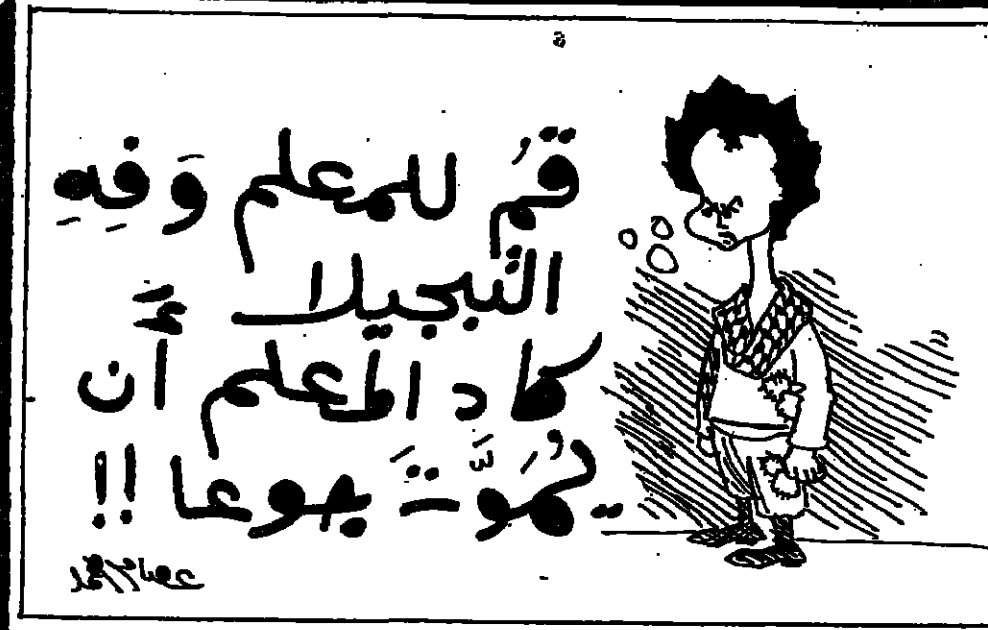 قُم للمعلم وَفِهِ
التبجيلا
كاد المعلم أَن
يُموَّتَ جوعا !!
عصام أحمد